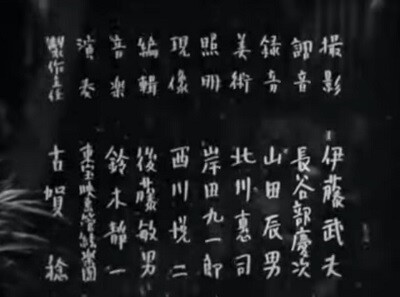 撮影 伊藤武夫
調音 長谷部慶次
録音 山田辰男
美術 北川惠司
照明 岸田九一郎
現像 西川悦二
編輯 後藤敏男
音樂 鈴木静一
演奏
製作主任 古賀稔